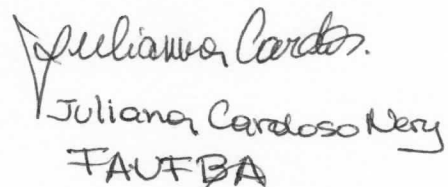 Julianna Cardos.
Juliana Cardoso Nery
FAUFBA